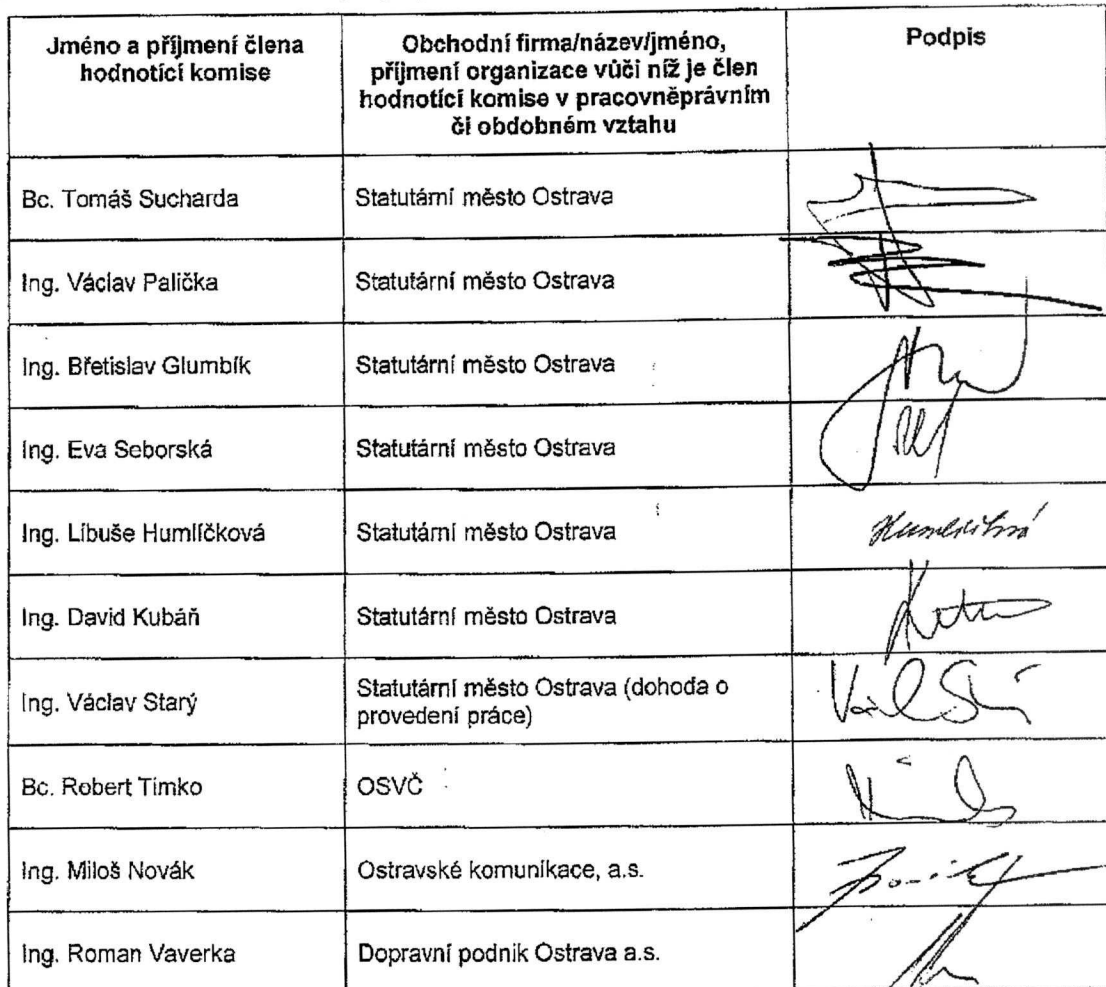 Jméno a příjmení člena
hodnotící komise
Obchodní firma/název/jméno,
příjmení organizace vůči níž je člen
hodnotící komise v pracovněprávním
či obdobném vztahu
Podpis
Bc. Tomáš Sucharda
Statutární město Ostrava
Ing. Václav Palička
Statutární město Ostrava
Ing. Břetislav Glumbík
Statutární město Ostrava
Ing. Eva Seborská
Statutární město Ostrava
Ing. Libuše Humlíčková
Statutární město Ostrava
Ing. David Kubáň
Statutární město Ostrava
Ing. Václav Starý
Statutární město Ostrava (dohoda o
provedení práce)
Bc. Robert Timko
OSVČ
Ing. Miloš Novák
Ostravské komunikace, a.s.
Ing. Roman Vaverka
Dopravní podnik Ostrava a.s.